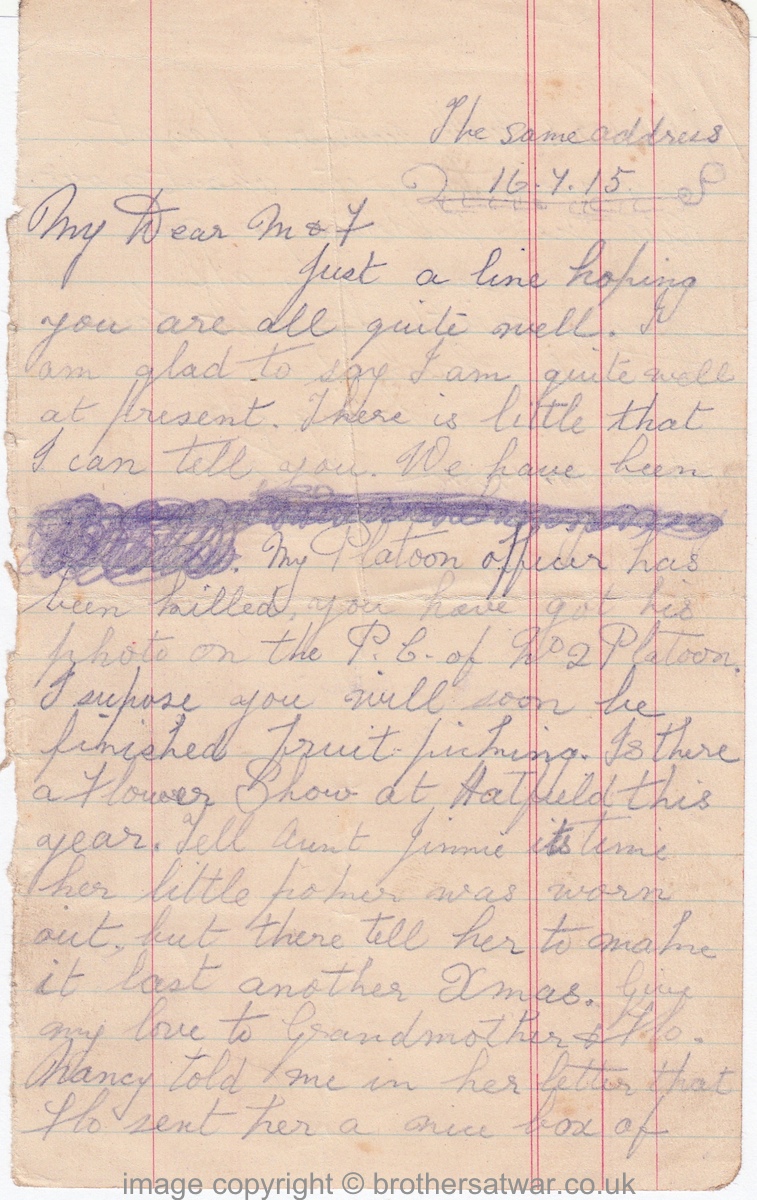 The same address
16.7.15
My Dear M & F
Just a line hoping
you are all quite well. I
am glad to say I am quite well
at present. There is little that
I can tell you. We have been
. My Platoon officer has
been killed, you have got his
photo on the P.C. of No 2 Platoon.
I supose you will soon be
finished fruit-picking. Is there
a Flower Show at Hatfield this
year. Tell Aunt Jinnie its time
her little poker was worn
out, but there tell her to make
it last another Xmas. Give
my love to Grandmother & Flo.
Nancy told me in her letter that
Flo sent her a nice box of
image copyright © brothersatwar.co.uk